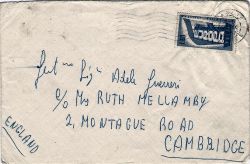 Gent. Sig. Adele Guerreri
c/o Mrs RUTH MELLAMBY
2, MONTAGUE ROAD
CAMBRIDGE
ENGLAND
EUROPA